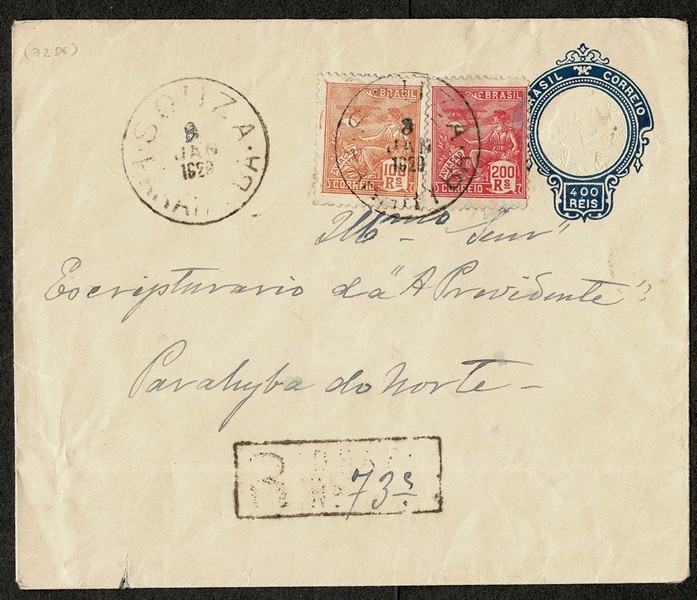 (72 DE)
BRASIL CORREIO
400
RÉIS
BRASIL
AVIAÇÃO
10 Rs
CORREIO
BRASIL
AVIAÇÃO
200 Rs
CORREIO
SOUZA
8
JAN
1929
8
JAN
1929
Illmo Senr
Escripturario da "A Previdente"
Parahyba do Norte -
R
Nº 73s